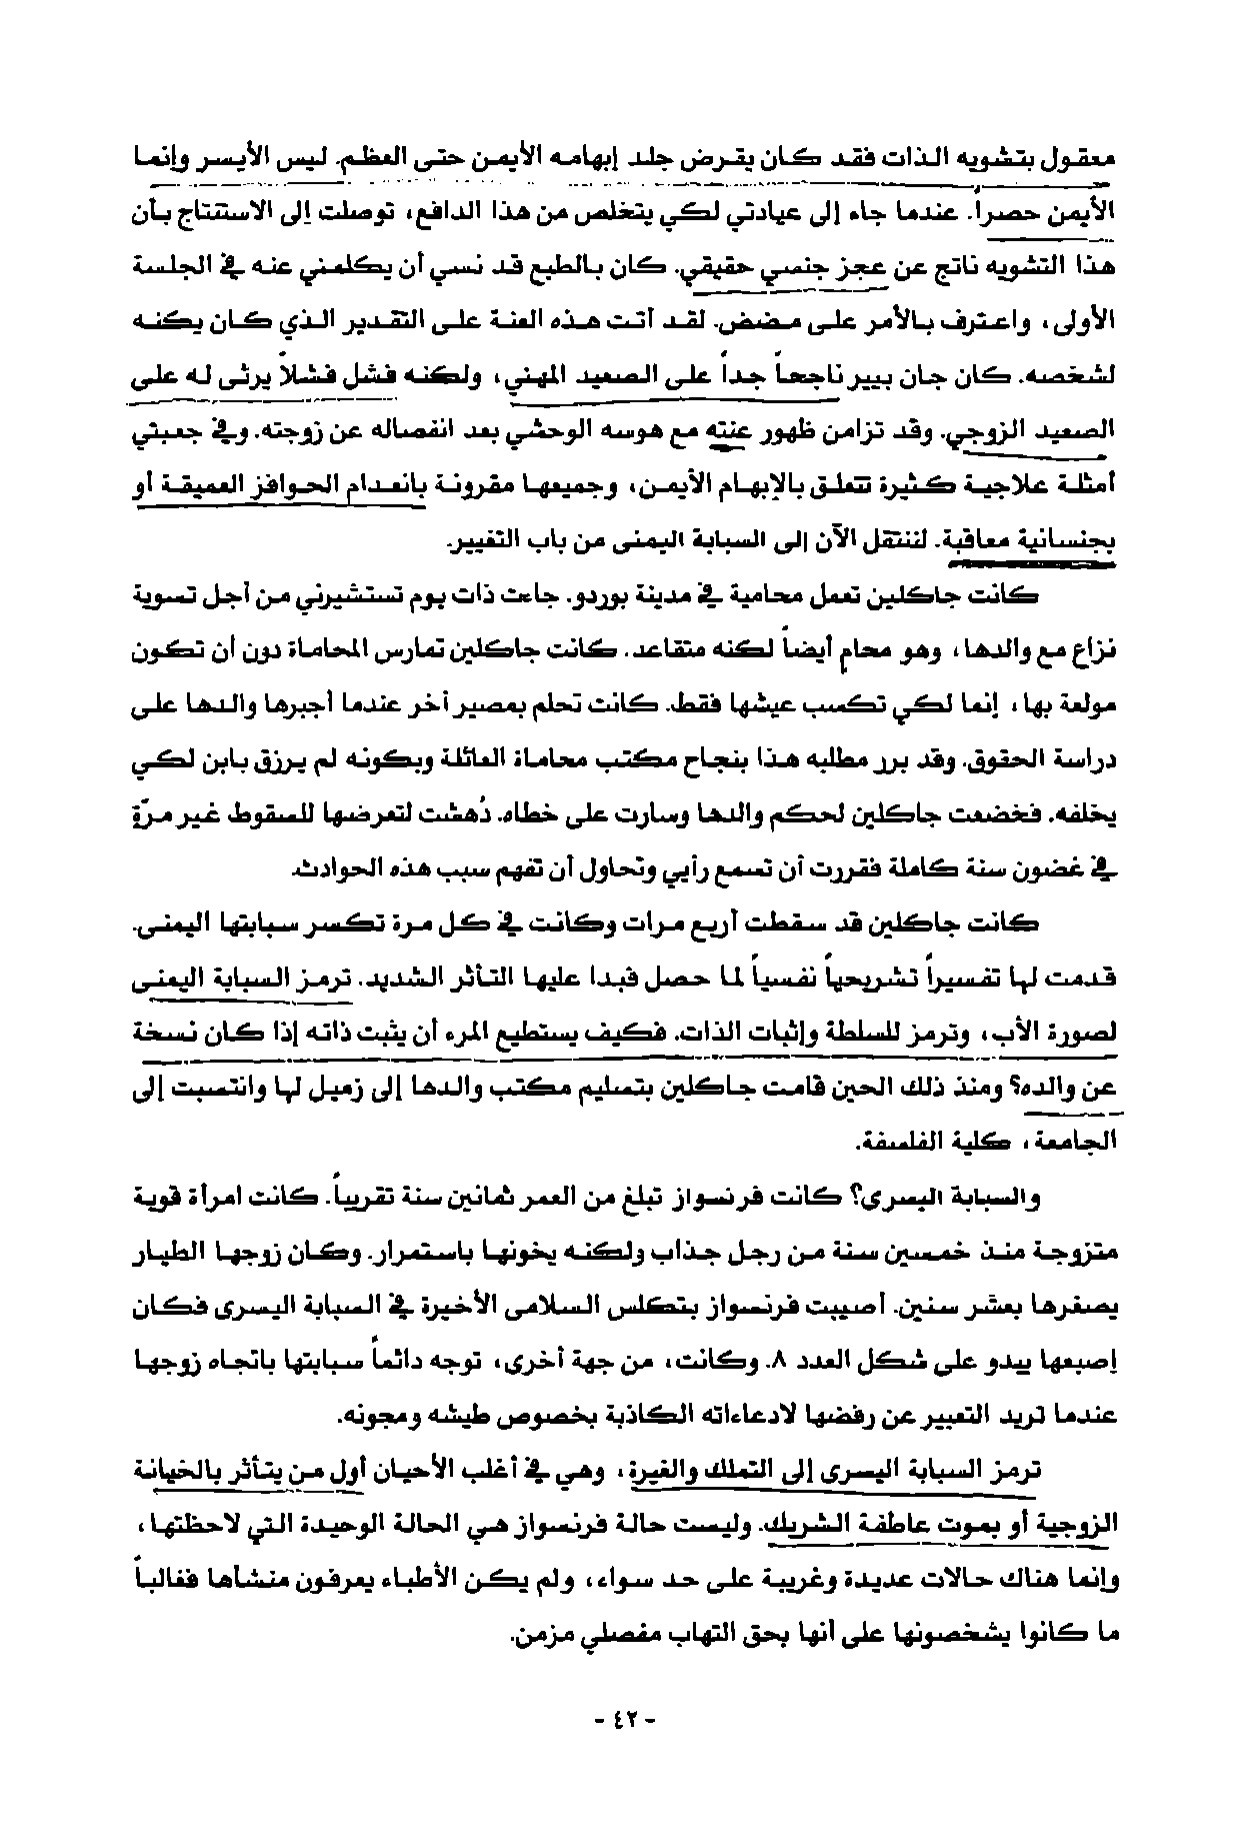 معقول بتشويه الذات فقد كان يقرض جلد إبهامه الأيمن حتى العظم. ليس الأيسر وإنما
الأيمن حصراً. عندما جاء إلى عيادتي لكي يتخلص من هذا الدافع، توصلت إلى الاستنتاج بأن
هذا التشويه ناتج عن عجز جنسي حقيقي. كان بالطبع قد نسي أن يكلمني عنه في الجلسة
الأولى، واعترف بالأمر على مضض. لقد أتت هذه العنة على التقدير الذي كان يكنه
لشخصه. كان جان بيير ناجحاً جداً على الصعيد المهني، ولكنه فشل فشلاً يرثى له على
الصعيد الزوجي. وقد تزامن ظهور عنته مع هوسه الوحشي بعد انفصاله عن زوجته. وفي جعبتي
أمثلة علاجية كثيرة تتعلق بالإبهام الأيمن، وجميعها مقرونة بانعدام الحوافز العميقة أو
بجنسانية معاقبة. لننتقل الآن إلى السبابة اليمنى من باب التغيير.
كانت جاكلين تعمل محامية في مدينة بوردو. جاءت ذات يوم تستشيرني من أجل تسوية
نزاع مع والدها، وهو محام أيضاً لكنه متقاعد. كانت جاكلين تمارس المحاماة دون أن تكون
مولعة بها، إنما لكي تكسب عيشها فقط. كانت تحلم بمصير آخر عندما أجبرها والدها على
دراسة الحقوق. وقد برر مطلبه هذا بنجاح مكتب محاماة العائلة وبكونه لم يرزق بابن لكي
يخلفه. فخضعت جاكلين لحكم والدها وسارت على خطاه. دُهشت لتعرضها للسقوط غير مرّة
في غضون سنة كاملة فقررت أن تسمع رأيي وتحاول أن تفهم سبب هذه الحوادث.
كانت جاكلين قد سقطت أربع مرات وكانت في كل مرة تكسر سبابتها اليمنى.
قدمت لها تفسيراً تشريحياً نفسياً لما حصل فبدا عليها التأثر الشديد. ترمز السبابة اليمنى
لصورة الأب، وترمز للسلطة وإثبات الذات. فكيف يستطيع المرء أن يثبت ذاته إذا كان نسخة
عن والده؟ ومنذ ذلك الحين قامت جاكلين بتسليم مكتب والدها إلى زميل لها وانتسبت إلى
الجامعة، كلية الفلسفة.
والسبابة اليسرى؟ كانت فرنسواز تبلغ من العمر ثمانين سنة تقريباً. كانت امرأة قوية
متزوجة منذ خمسين سنة من رجل جذاب ولكنه يخونها باستمرار. وكان زوجها الطيار
يصغرها بعشر سنين. أصيبت فرنسواز بتكلس السلامى الأخيرة في السبابة اليسرى فكان
إصبعها يبدو على شكل العدد ٨. وكانت، من جهة أخرى، توجه دائماً سبابتها باتجاه زوجها
عندما تريد التعبير عن رفضها لادعاءاته الكاذبة بخصوص طيشه ومجونه.
ترمز السبابة اليسرى إلى التملك والغيرة، وهي في أغلب الأحيان أول من يتأثر بالخيانة
الزوجية أو بموت عاطفة الشريك. وليست حالة فرنسواز هي الحالة الوحيدة التي لاحظتها،
وإنما هناك حالات عديدة وغريبة على حد سواء، ولم يكن الأطباء يعرفون منشأها فغالباً
ما كانوا يشخصونها على أنها بحق التهاب مفصلي مزمن.
- ٤٢ -